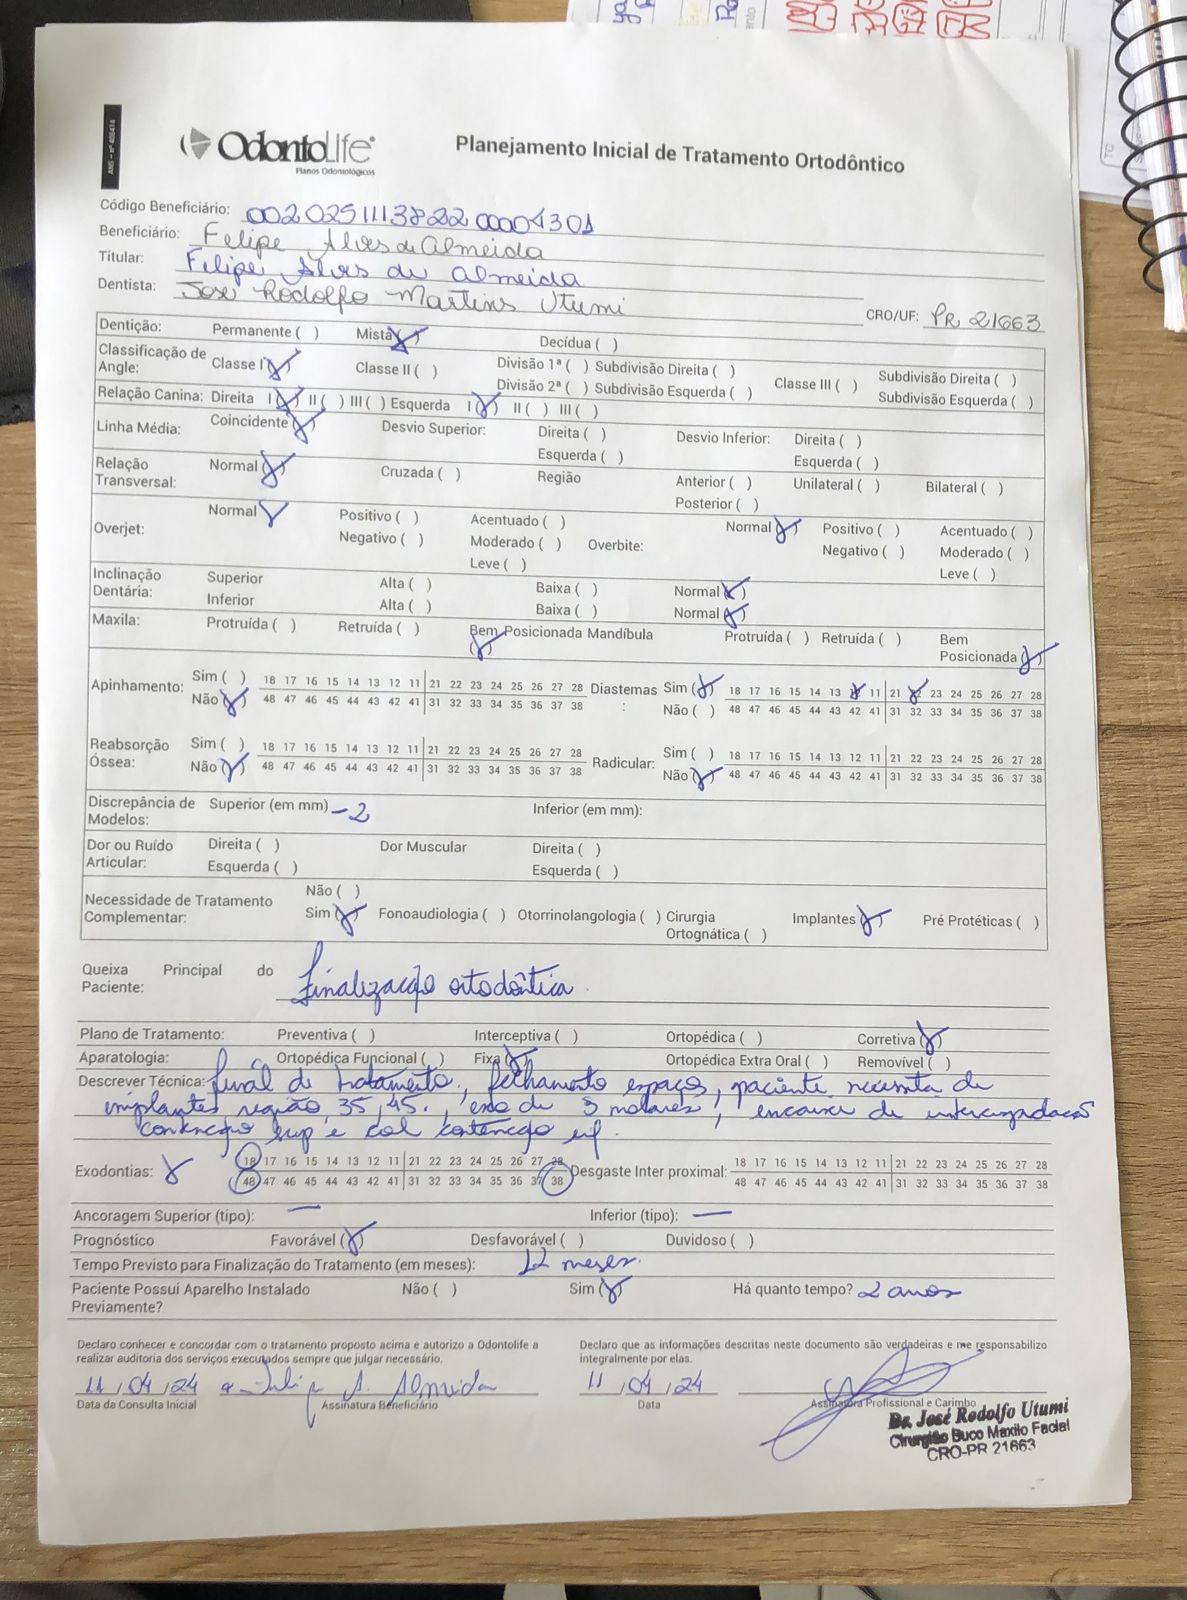 ANS - nº 406414
OdontoLife
Planos Odontológicos
Planejamento Inicial de Tratamento Ortodôntico
Código Beneficiário: 002025111382200004301
Beneficiário: Felipe Alves de Almeida
Titular: Felipe Alves de Almeida
Dentista: José Rodolfo Martins Utumi CRO/UF: PR 21663
Dentição: Permanente ( ) Mista (X) Decídua ( )
Classificação de Angle: Classe I (X) Classe II ( ) Divisão 1ª ( ) Subdivisão Direita ( ) Divisão 2ª ( ) Subdivisão Esquerda ( ) Classe III ( ) Subdivisão Direita ( ) Subdivisão Esquerda ( )
Relação Canina: Direita I (X) II ( ) III ( ) Esquerda I (X) II ( ) III ( )
Linha Média: Coincidente (X) Desvio Superior: Direita ( ) Esquerda ( ) Desvio Inferior: Direita ( ) Esquerda ( )
Relação Transversal: Normal (X) Cruzada ( ) Região Anterior ( ) Posterior ( ) Unilateral ( ) Bilateral ( )
Overjet: Normal (X) Positivo ( ) Negativo ( ) Acentuado ( ) Moderado ( ) Leve ( ) Overbite: Normal (X) Positivo ( ) Negativo ( ) Acentuado ( ) Moderado ( ) Leve ( )
Inclinação Dentária: Superior Alta ( ) Baixa ( ) Normal (X)
Inferior Alta ( ) Baixa ( ) Normal (X)
Maxila: Protruída ( ) Retruída ( ) Bem Posicionada (X) Mandíbula Protruída ( ) Retruída ( ) Bem Posicionada (X)
Apinhamento: Sim ( ) 18 17 16 15 14 13 12 11 21 22 23 24 25 26 27 28 Diastemas: Sim (X) 18 17 16 15 14 13 12 11 21 22 23 24 25 26 27 28
Não (X) 48 47 46 45 44 43 42 41 31 32 33 34 35 36 37 38 Não ( ) 48 47 46 45 44 43 42 41 31 32 33 34 35 36 37 38
Reabsorção Óssea: Sim ( ) 18 17 16 15 14 13 12 11 21 22 23 24 25 26 27 28 Radicular: Sim ( ) 18 17 16 15 14 13 12 11 21 22 23 24 25 26 27 28
Não (X) 48 47 46 45 44 43 42 41 31 32 33 34 35 36 37 38 Não (X) 48 47 46 45 44 43 42 41 31 32 33 34 35 36 37 38
Discrepância de Modelos: Superior (em mm) -2 Inferior (em mm):
Dor ou Ruído Articular: Direita ( ) Esquerda ( ) Dor Muscular Direita ( ) Esquerda ( )
Necessidade de Tratamento Complementar: Não ( )
Sim (X) Fonoaudiologia ( ) Otorrinolangologia ( ) Cirurgia Ortognática ( ) Implantes (X) Pré Protéticas ( )
Queixa Principal do Paciente: Finalização ortodôntica.
Plano de Tratamento: Preventiva ( ) Interceptiva ( ) Ortopédica ( ) Corretiva (X)
Aparatologia: Ortopédica Funcional ( ) Fixa (X) Ortopédica Extra Oral ( ) Removível ( )
Descrever Técnica: final de tratamento, fechamento espaços, paciente necessita de
implantes região 35, 45. exo de 3 molares, encaixe de
contenção sup e col contenção inf.
Exodontias: X 18 17 16 15 14 13 12 11 21 22 23 24 25 26 27 28 Desgaste Inter proximal: 18 17 16 15 14 13 12 11 21 22 23 24 25 26 27 28
48 47 46 45 44 43 42 41 31 32 33 34 35 36 37 38 48 47 46 45 44 43 42 41 31 32 33 34 35 36 37 38
Ancoragem Superior (tipo): — Inferior (tipo): —
Prognóstico Favorável (X) Desfavorável ( ) Duvidoso ( )
Tempo Previsto para Finalização do Tratamento (em meses): 12 meses.
Paciente Possuí Aparelho Instalado Previamente? Não ( ) Sim (X) Há quanto tempo? 2 anos
Declaro conhecer e concordar com o tratamento proposto acima e autorizo a Odontolife a
realizar auditoria dos serviços executados sempre que julgar necessário.
Declaro que as informações descritas neste documento são verdadeiras e me responsabilizo
integralmente por elas.
11/04/24 Felipe A. Almeida 11/04/24
Data da Consulta Inicial Assinatura Beneficiário Data Assinatura Profissional e Carimbo
Dr. José Rodolfo Utumi
Cirurgião Buco Maxilo Facial
CRO-PR 21663